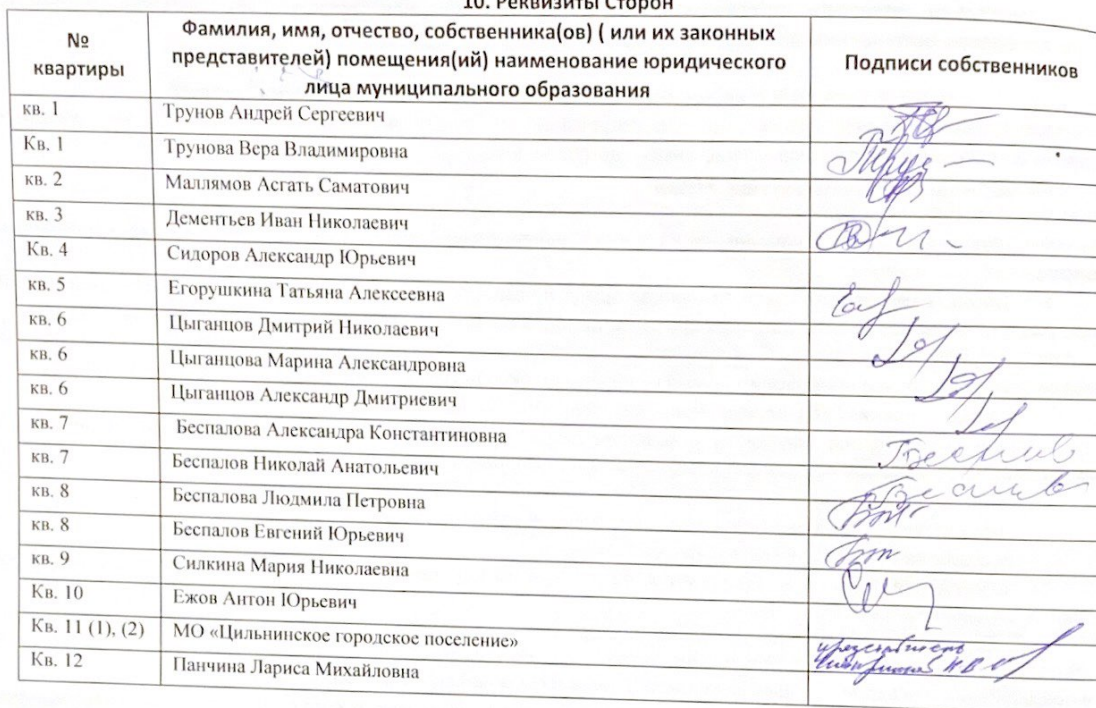 10. Реквизиты Сторон
№ квартиры
Фамилия, имя, отчество, собственника(ов) ( или их законных представителей) помещения(ий) наименование юридического лица муниципального образования
Подписи собственников
кв. 1 Трунов Андрей Сергеевич
Кв. 1 Трунова Вера Владимировна
кв. 2 Маллямов Асгать Саматович
кв. 3 Дементьев Иван Николаевич
Кв. 4 Сидоров Александр Юрьевич
кв. 5 Егорушкина Татьяна Алексеевна
кв. 6 Цыганцов Дмитрий Николаевич
кв. 6 Цыганцова Марина Александровна
кв. 6 Цыганцов Александр Дмитриевич
кв. 7 Беспалова Александра Константиновна
кв. 7 Беспалов Николай Анатольевич
кв. 8 Беспалова Людмила Петровна
кв. 8 Беспалов Евгений Юрьевич
кв. 9 Силкина Мария Николаевна
Кв. 10 Ежов Антон Юрьевич
Кв. 11 (1), (2) МО «Цильнинское городское поселение»
Кв. 12 Панчина Лариса Михайловна